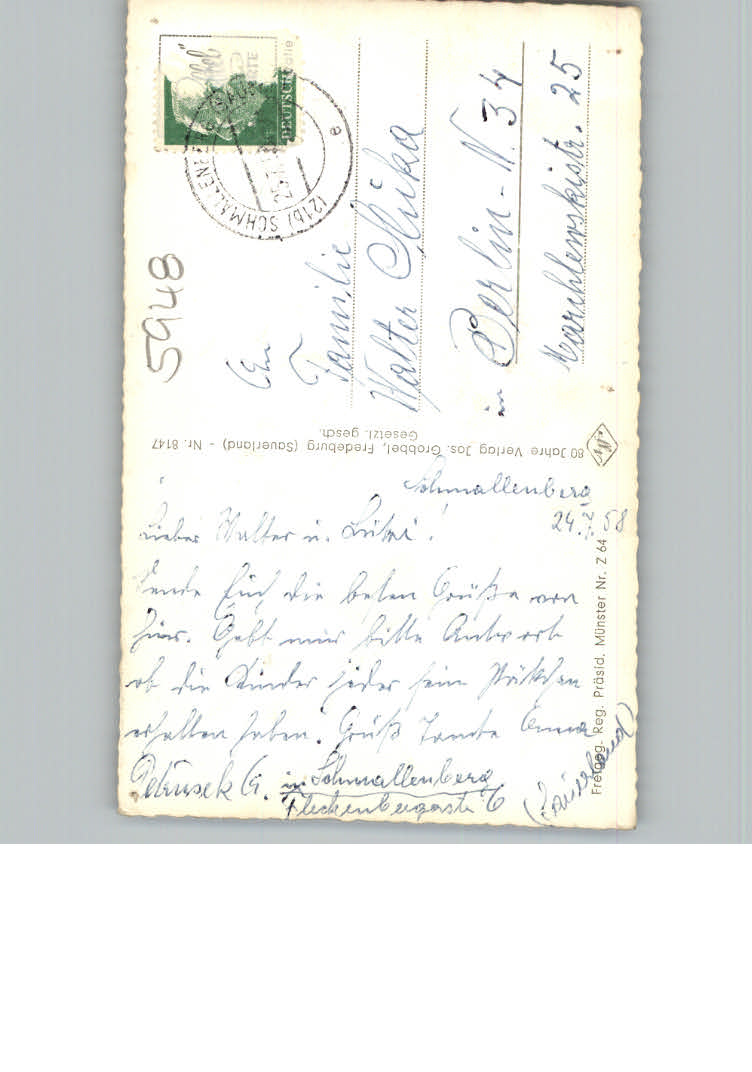 Schmallenberg
24.7.58
Lieber Walter u. Lützi!
Sende Euch die besten Grüße von
hier. Gebt mir bitte Antwort
ob die Kinder jeder sein Päckchen
erhalten haben. Gruß Tante Anna
Petrusek G. in Schmallenberg
Fleckenbergerstr. 6
(Sauerland)
5948
An
Familie
Walter
in Berlin-N. 34
Marchlewskistr. 25
(21b) SCHMALLENBE
DEUTSCHE
80 Jahre Verlag Jos. Grobbel, Fredeburg (Sauerland) - Nr. 8147
Gesetzl. gesch.
Freigeg. Reg. Präsid. Münster Nr. Z 64